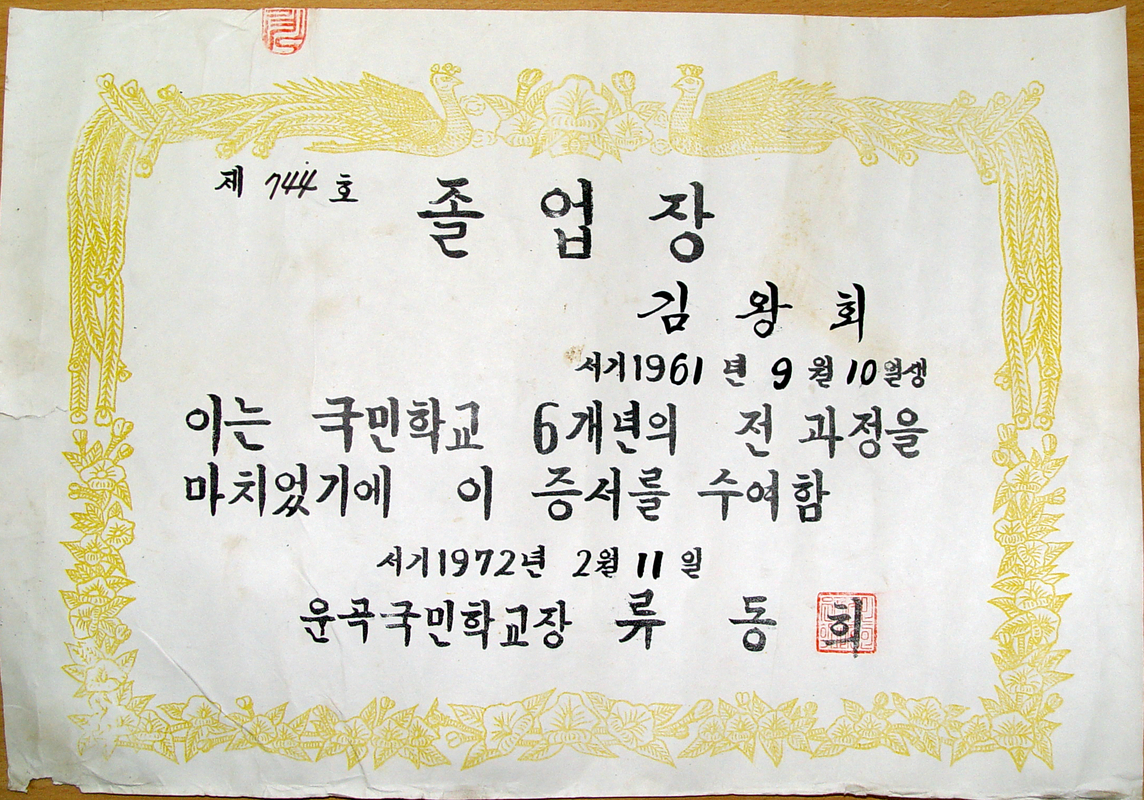 제 744 호
졸 업 장
김 왕 회
서기1961 년 9 월 10 일생
이는 국민학교 6개년의 전 과정을
마치었기에 이 증서를 수여함
서기1972년 2월 11 일
운곡국민학교장 류 동 희